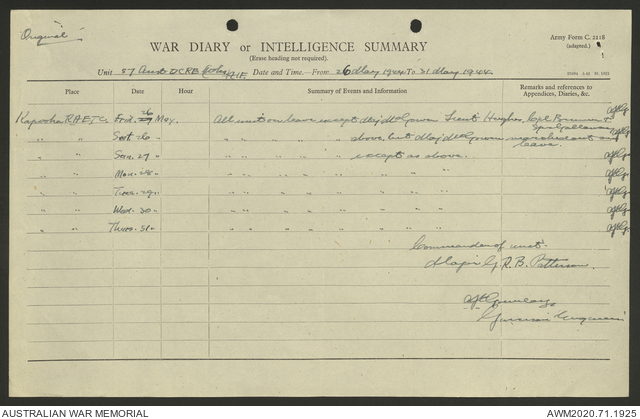 Original
Army Form C. 2118
(adapted.)
WAR DIARY or INTELLIGENCE SUMMARY
(Erase heading not required).
1
Unit 57 Aust DCRE AIF Date and Time.—From 26 May 1944 To 31 May 1944
Place Date Hour Summary of Events and Information Remarks and references to Appendices, Diaries, &c.
Kapooka RAETC Frid. 26 May. All unit on leave except Maj McGowan Lieut Hughes, Cpl &
" " Sat 26 " " " " " above, but Maj McGowan marched out on leave.
" " Sun. 27 " " " " " except as above.
" " Mon. 28 " " " " " " "
" " Tues. 29 " " " " " " "
" " Wed. 30 " " " " " " "
" " Thurs. 31 " " " " " " "
Commander of unit
Major G. R. B. Patterson.
AUSTRALIAN WAR MEMORIAL
AWM2020.71.1925